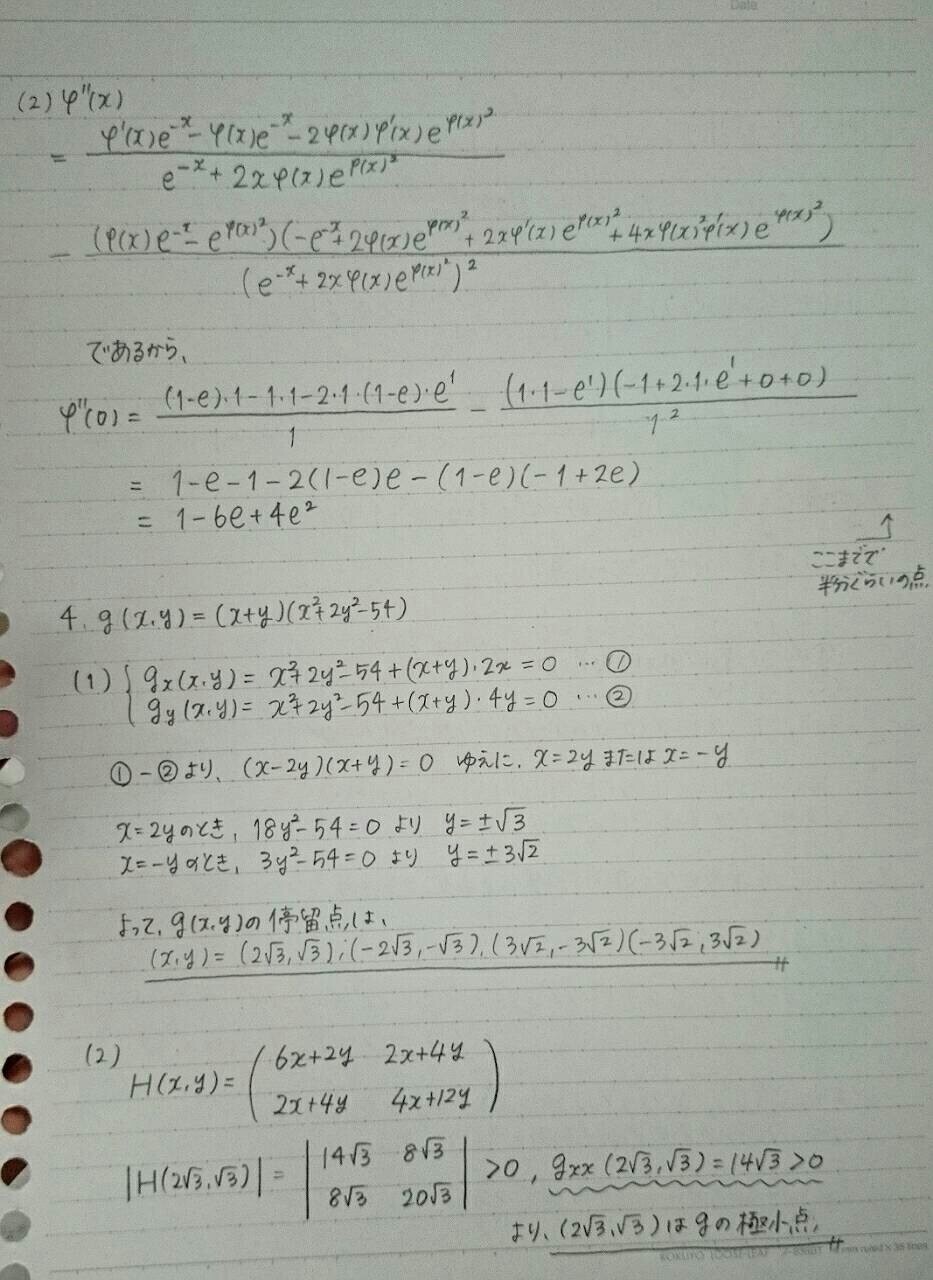 Date
(2) φ''(x)
= \frac{φ'(x)e^{-x} - φ(x)e^{-x} - 2φ(x)φ'(x)e^{φ(x)^2}}{e^{-x} + 2xφ(x)e^{φ(x)^2}}
- \frac{(φ(x)e^{-x} - e^{φ(x)^2})(-e^{-x} + 2φ(x)e^{φ(x)^2} + 2xφ'(x)e^{φ(x)^2} + 4xφ(x)^2φ'(x)e^{φ(x)^2})}{(e^{-x} + 2xφ(x)e^{φ(x)^2})^2}
であるから、
φ''(0) = \frac{(1-e)・1 - 1・1 - 2・1・(1-e)・e^1}{1} - \frac{(1・1 - e^1)(-1 + 2・1・e^1 + 0 + 0)}{1^2}
= 1-e-1-2(1-e)e-(1-e)(-1+2e)
= 1-6e+4e²
↑
ここまでで
半分ぐらいの点
4. g(x,y) = (x+y)(x²+2y²-54)
(1) { g_x(x,y) = x²+2y²-54+(x+y)・2x = 0 … ①
g_y(x,y) = x²+2y²-54+(x+y)・4y = 0 … ②
①-②より、(x-2y)(x+y) = 0 ゆえに、x=2y または x=-y
x=2yのとき, 18y²-54=0 より y=±√3
x=-yのとき, 3y²-54=0 より y=±3√2
よって, g(x,y)の停留点は、
(x,y) = (2√3,√3), (-2√3,-√3), (3√2,-3√2) (-3√2,3√2)
(2)
H(x,y) = \begin{pmatrix} 6x+2y & 2x+4y \\ 2x+4y & 4x+12y \end{pmatrix}
|H(2√3,√3)| = \begin{vmatrix} 14√3 & 8√3 \\ 8√3 & 20√3 \end{vmatrix} >0, g_{xx}(2√3,√3) = 14√3 >0
より、(2√3,√3)はgの極小点
KOKUYO LOOSE-LEAF